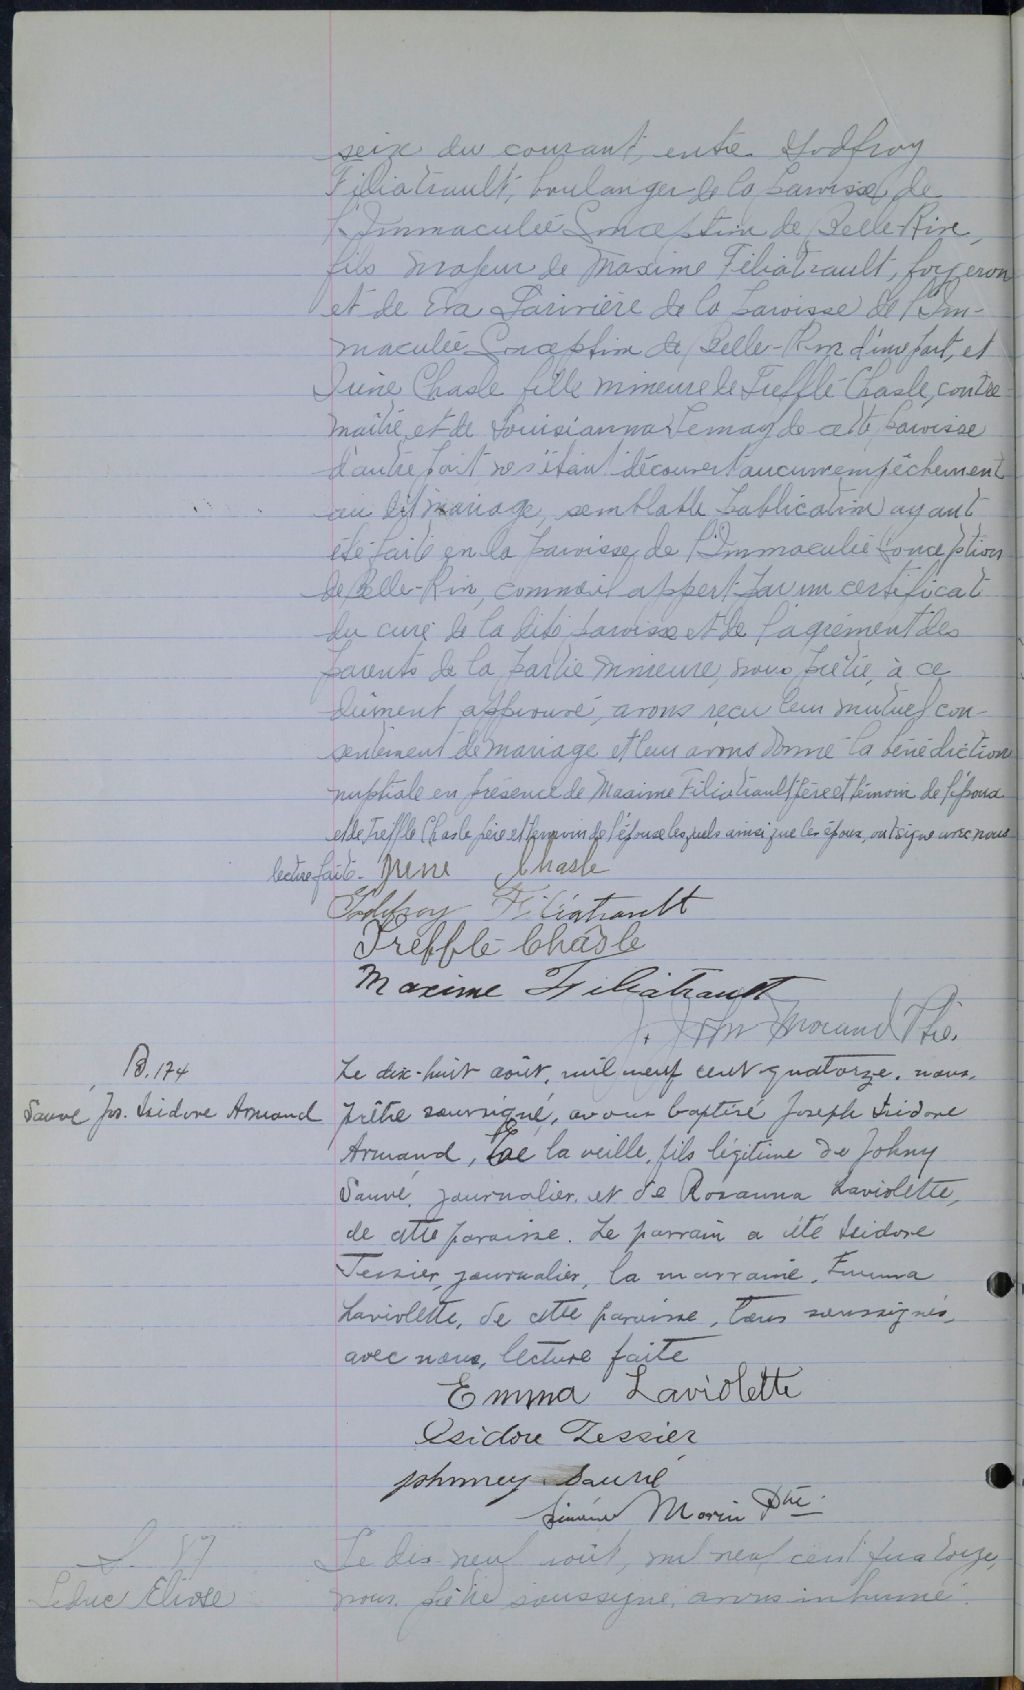 seize du courant, entre Godfroy
Filiatrault, boulanger de la paroisse de
l'Immaculée Conception de Belle-Rive,
fils majeur de Maxime Filiatrault, forgeron
et de Eva Larivière de la paroisse de l'Im-
maculée Conception de Belle-Rive d'une part, et
Irène Chasle fille mineure de Trefflé Chasle, contre-
maître, et de Louisianna Lemay de cette paroisse
d'autre part ne s'étant découvert aucun empêchement
au dit mariage, semblable publication ayant
été faite en la paroisse de l'Immaculée Conception
de Belle-Rive, comme il appert par un certificat
du curé de la dite paroisse et de l'agrément des
parents de la partie mineure, nous prêtre, à ce
dûment approuvé, avons reçu leur mutuel con-
sentement de mariage et leur avons donné la bénédiction
nuptiale en présence de Maxime Filiatrault père et témoin de l'époux
et de Trefflé Chasle père et témoin de l'épouse lesquels ainsi que les époux, ont signé avec nous
lecture faite. Irene Chasle
Godefroy Filiatrault
Trefflé Châsle
Maxime Filiatrault
J. John Morand Ptre.
B. 174
Sauvé Jos. Isidore Armand
Le dix-huit août, mil neuf cent quatorze, nous,
prêtre soussigné, avons baptisé Joseph Isidore
Armand, né la veille, fils légitime de Johny
Sauvé, journalier, et de Rosanna Laviolette,
de cette paroisse. Le parrain a été Isidore
Tessier, journalier, la marraine, Emma
Laviolette, de cette paroisse, tous soussignés,
avec nous, lecture faite
Emma Laviolette
Isidore Tessier
Johnney Sauvé
Morin Ptre.
S. 87
Leduc Eliose
Le dix-neuf août, mil neuf cent quatorze,
nous, prêtre soussigné, avons inhumé